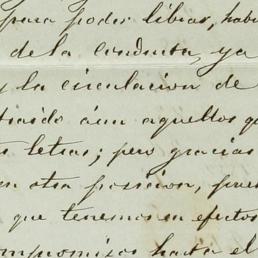 para poder librar, habi
de la conducta, ya
y la circulacion de
traido aun aquellos qu
s letras; pero gracias
en otra posicion, pues
que tenemos en efectos
compromisos hasta el